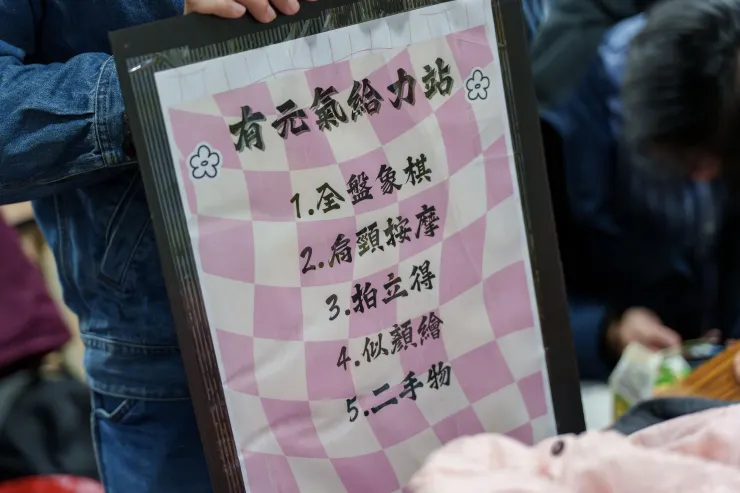 有元氣給力站
1.全盤象棋
2.肩頸按摩
3.拍立得
4.似顏繪
5.二手物